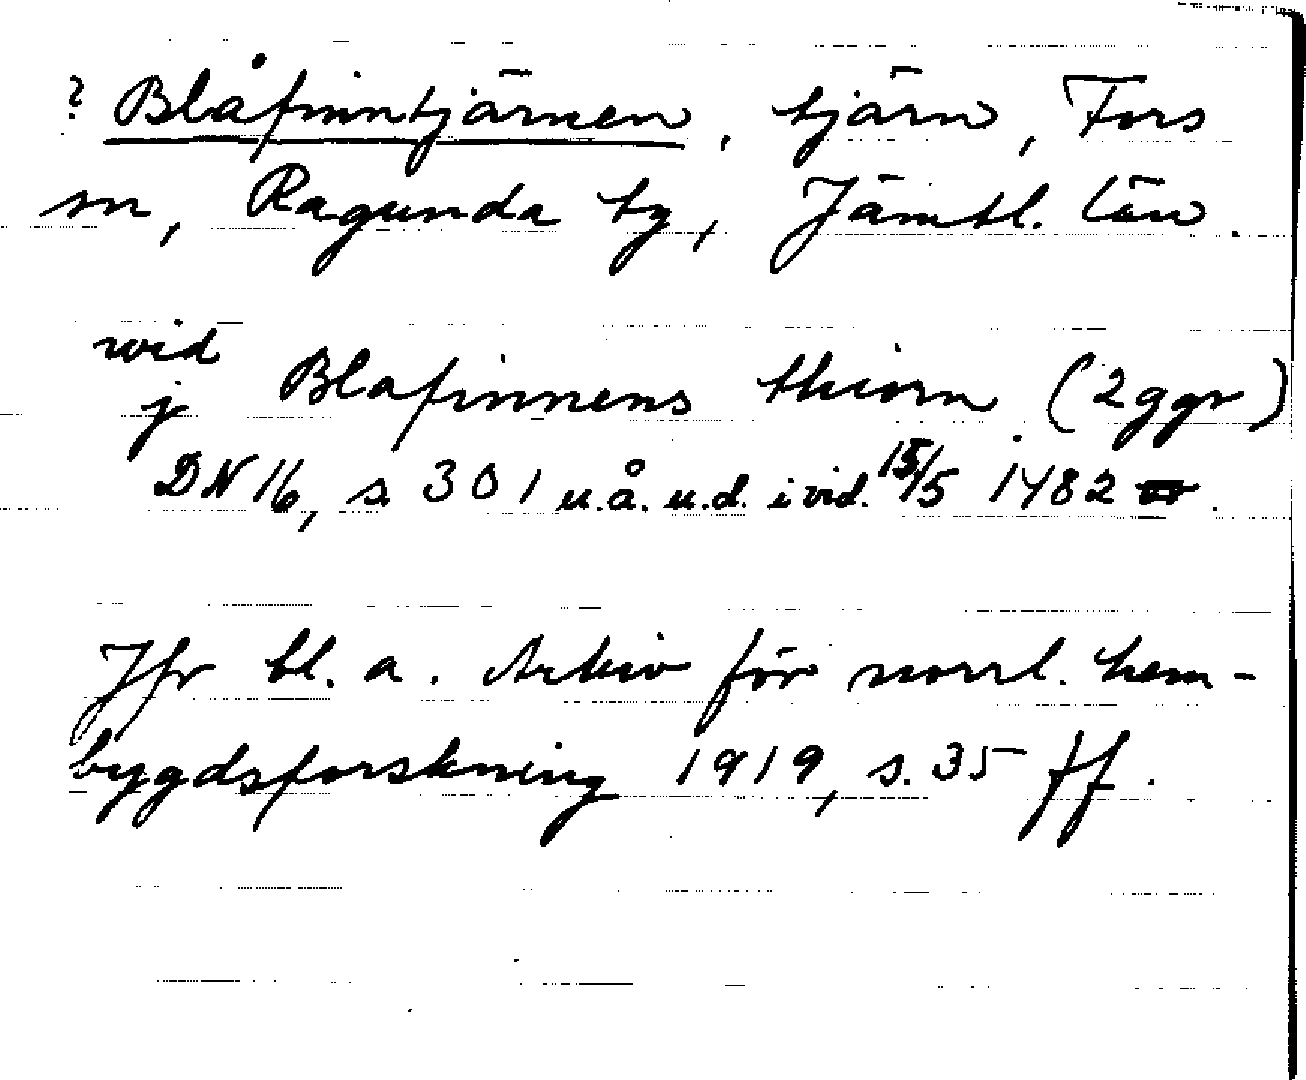 ? Blåfinntjärnen, tjärn, Fors
sn, Ragunda tg, Jämtl. län.
wid
j Blafinnens thiorn (2ggr)
DN 16, s. 301 u.å. u.d. i vid. 15/5 1482.
Jfr bl. a. Arkiv för norrl. hem-
bygdsforskning 1919, s. 35 ff.